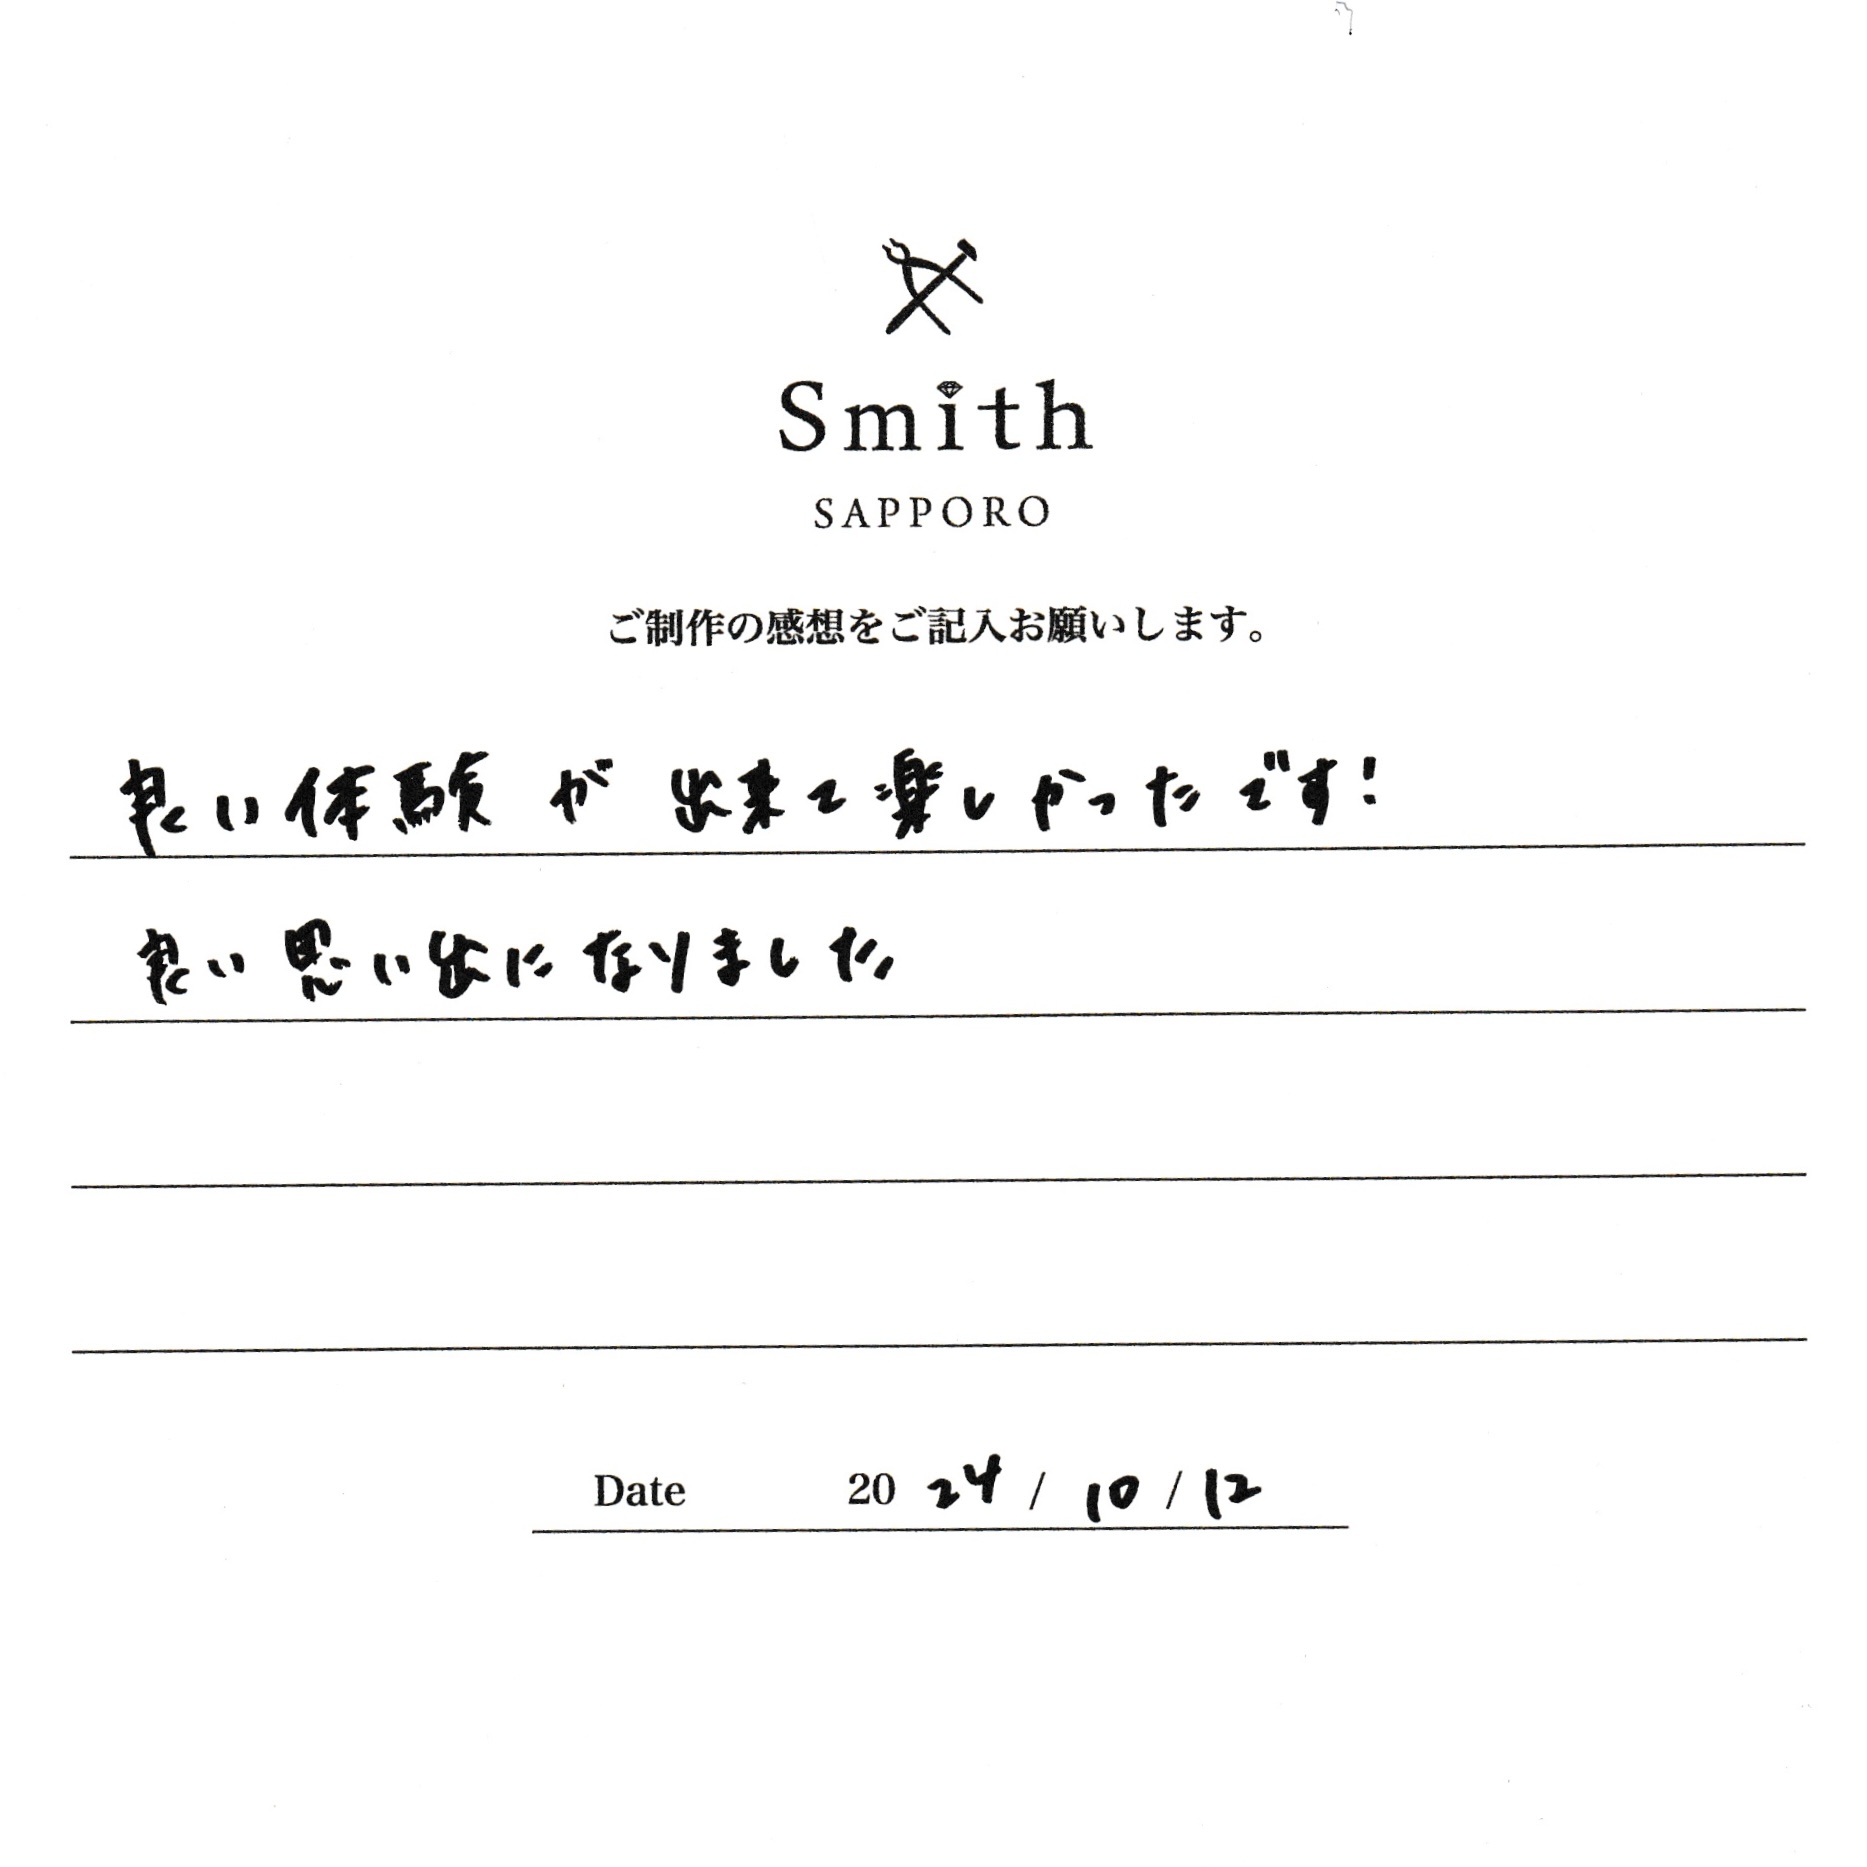 Smith
SAPPORO
ご制作の感想をご記入お願いします。
良い体験が出来て楽しかったです!
良い思い出になりました
Date 2024/10/12